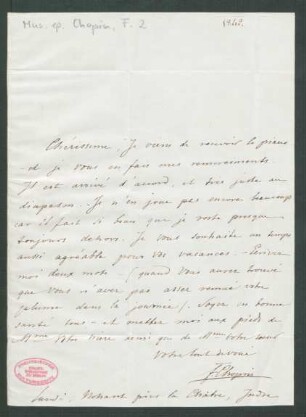 Mus. ep. Chopin, F. 2
Chérissime. Je viens de recevoir le piano
et je vous en fais mes remerciments.
Il est arrivé d'accord, et très juste au
diapason. Je n'en joue pas encore beaucoup
car il fait si beau que je reste presque
toujours dehors. Je vous souhaite un temps
aussi agréable pour vos vacances. Ecrivez
moi deux mots (quand vous aurez trouvé
que vous n'avez pas assez remué votre
plume dans la journée). Soyez en bonne
santé tous et mettez moi aux pieds de
Mme Votre mère ainsi que de Mme votre soeur
Votre tout dévoué
FChopin
Lundi. Nohant près la Châtre, Indre